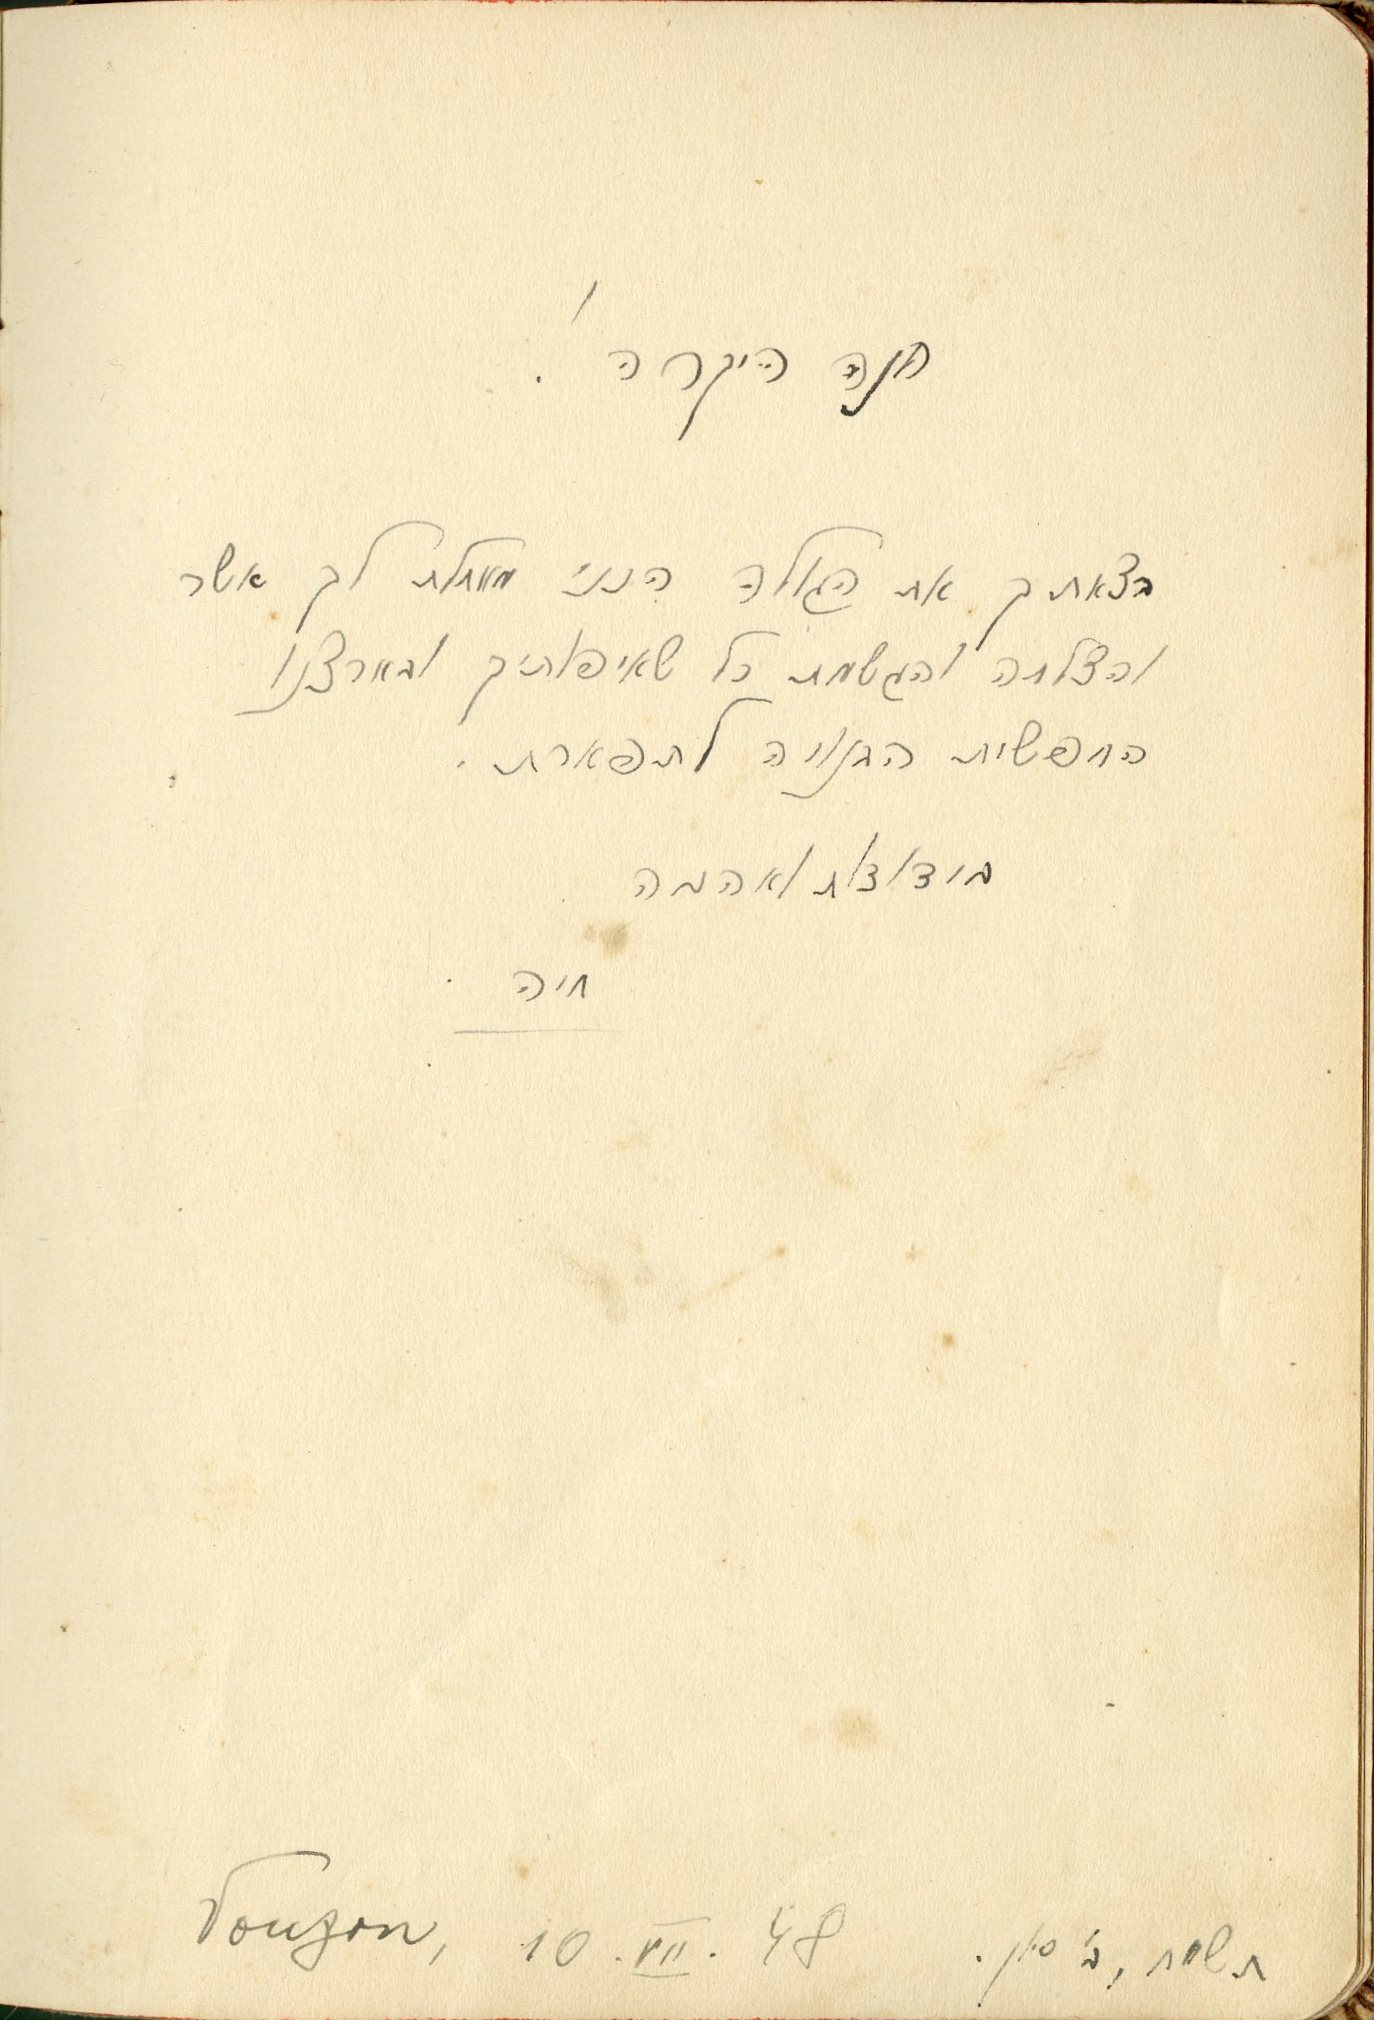 חנה היקרה !
בצאתך את הגולה הנני מאחלת לך אשר
והצלחה והגשמת כל שאיפותיך ובארצנו
החפשית הבנויה לתפארת.
בידידות ואהבה
חיה.
תש"ח, ב' סיון.
10.VII.48